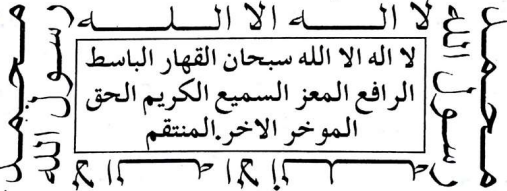 لا اله الا الله
محمد رسول الله
لا اله الا الله سبحان القهار الباسط
الرافع المعز السميع الكريم الحق
الموخر الاخر.المنتقم
محمد رسول الله
لا اله الا الله